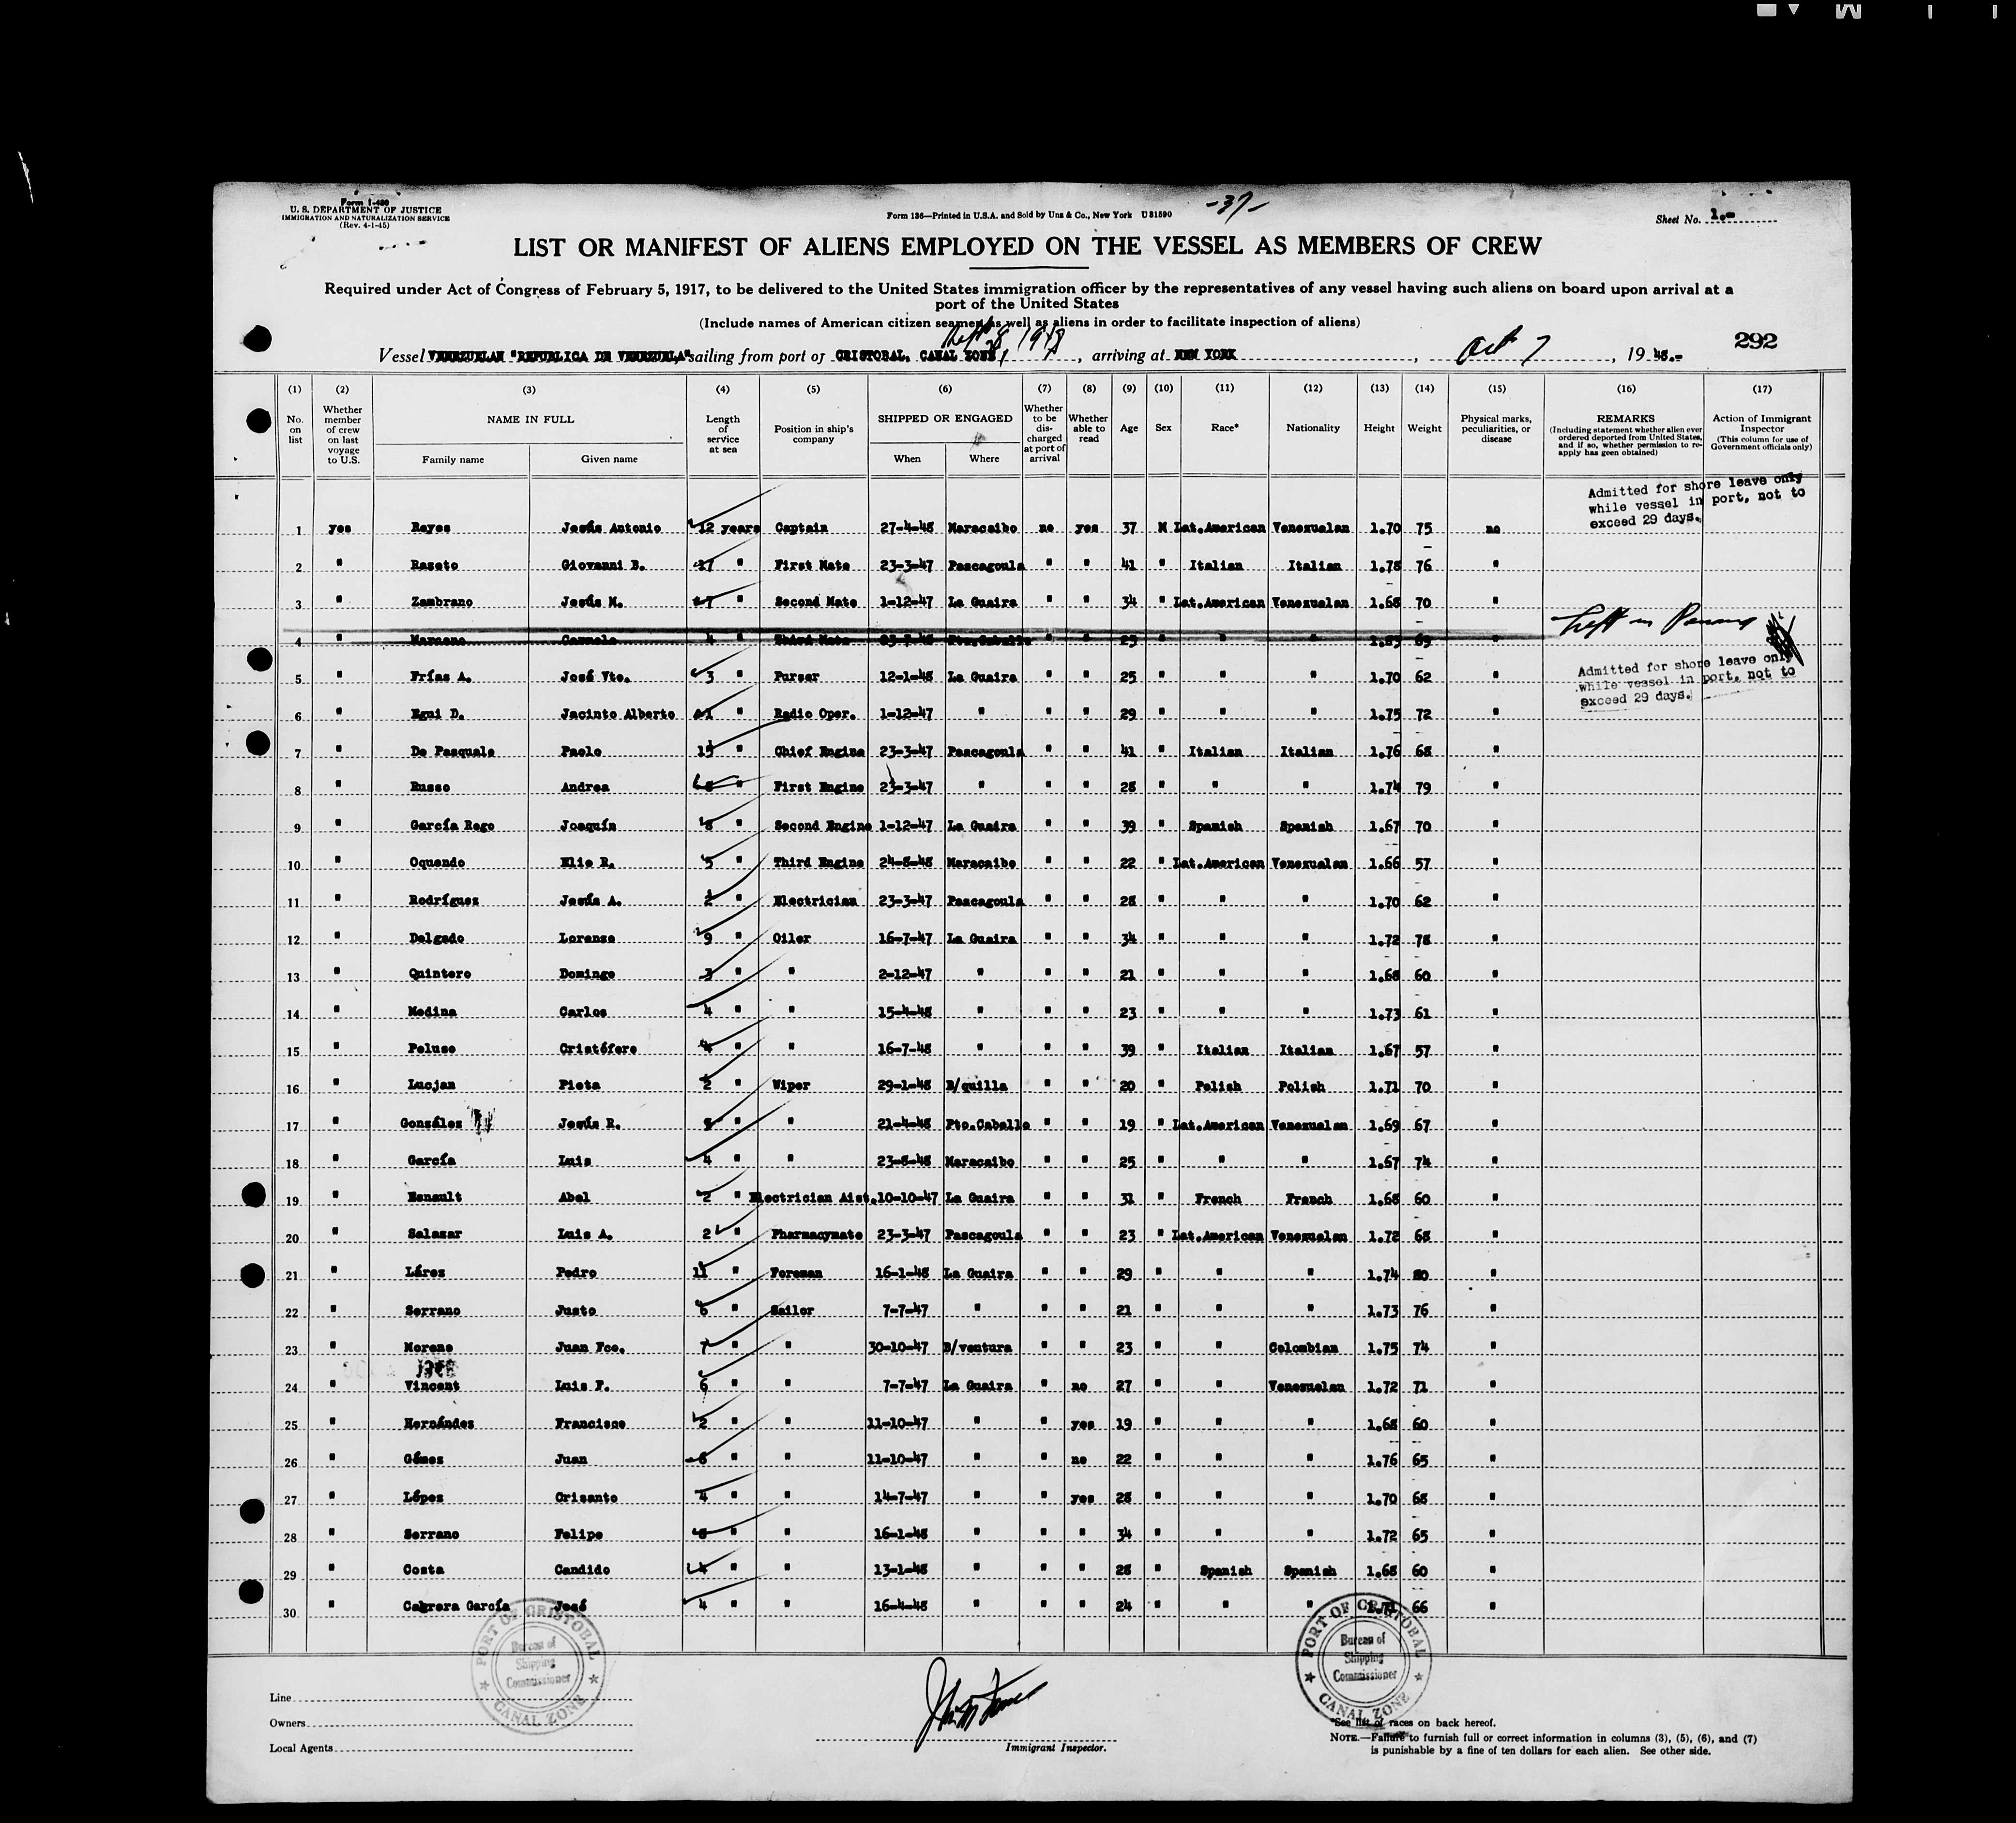 Form I-480
U. S. DEPARTMENT OF JUSTICE
IMMIGRATION AND NATURALIZATION SERVICE
(Rev. 4-1-45)
Form 136—Printed in U.S.A. and Sold by Unz & Co., New York U 31590
-37-
Sheet No. 1.-
LIST OR MANIFEST OF ALIENS EMPLOYED ON THE VESSEL AS MEMBERS OF CREW
Required under Act of Congress of February 5, 1917, to be delivered to the United States immigration officer by the representatives of any vessel having such aliens on board upon arrival at a
port of the United States
(Include names of American citizen seamen as well as aliens in order to facilitate inspection of aliens)
Sept 28, 1948
292
Vessel VENEZUELAN "REPUBLICA DE VENEZUELA" sailing from port of CRISTOBAL, CANAL ZONE, arriving at NEW YORK, Oct 7, 19 48.-
(1) (2) (3) (4) (5) (6) (7) (8) (9) (10) (11) (12) (13) (14) (15) (16) (17)
No. on list | Whether member of crew on last voyage to U.S. | NAME IN FULL | Family name | Given name | Length of service at sea | Position in ship's company | SHIPPED OR ENGAGED | When | Where | Whether to be discharged at port of arrival | Whether able to read | Age | Sex | Race* | Nationality | Height | Weight | Physical marks, peculiarities, or disease | REMARKS (Including statement whether alien ever ordered deported from United States, and if so, whether permission to re-apply has geen obtained) | Action of Immigrant Inspector (This column for use of Government officials only)
Admitted for shore leave only
while vessel in port, not to
exceed 29 days.
1 yes Reyes Jesús Antonio 12 years Captain 27-4-48 Maracaibo no yes 37 M Lat.American Venezuelan 1.70 75 no
2 " Raseto Giovanni B. 17 " First Mate 23-3-47 Pascagoula " " 41 " Italian Italian 1.78 76 "
3 " Zambrano Jesús M. 7 " Second Mate 1-12-47 La Guaira " " 34 " Lat.American Venezuelan 1.68 70 "
4 " Marcano 4 " Third Mate Pto.Cabello " " 25 " " " 69 " Left in Panama
5 " Frías A. José Vte. 3 " Purser 12-1-48 La Guaira " " 25 " " " 1.70 62 "
Admitted for shore leave only
while vessel in port, not to
exceed 29 days.
6 " Egui D. Jacinto Alberto " Radio Oper. 1-12-47 " " " 29 " " " 1.75 72 "
7 " De Pasquale Paolo 15 " Chief Engine 23-3-47 Pascagoula " " 41 " Italian Italian 1.76 68 "
8 " Russo Andrea " First Engine 23-3-47 " " " 28 " " " 1.74 79 "
9 " García Rego Joaquín 8 " Second Engine 1-12-47 La Guaira " " 39 " Spanish Spanish 1.67 70 "
10 " Oquendo Elio R. 5 " Third Engine 24-8-48 Maracaibo " " 22 " Lat.American Venezuelan 1.66 57 "
11 " Rodríguez Jesús A. 2 " Electrician 23-3-47 Pascagoula " " 28 " " " 1.70 62 "
12 " Delgado Lorenzo 9 " Oiler 16-7-47 La Guaira " " 34 " " " 1.72 78 "
13 " Quintero Domingo 3 " " 2-12-47 " " " 21 " " " 1.68 60 "
14 " Medina Carlos 4 " " 15-4-48 " " " 23 " " " 1.73 61 "
15 " Peluso Cristófero 4 " " 16-7-48 " " " 39 " Italian Italian 1.67 57 "
16 " Lucjan Pieta 2 " Wiper 29-1-48 B/quilla " " 20 " Polish Polish 1.71 70 "
17 " González Jesús R. " " 21-4-48 Pto.Cabello " " 19 " Lat.American Venezuelan 1.69 67 "
18 " García Luis 4 " " 23-8-48 Maracaibo " " 25 " " " 1.67 74 "
19 " Esnault Abel 2 " Electrician Aist. 10-10-47 La Guaira " " 31 " French French 1.68 60 "
20 " Salazar Luis A. 2 " Pharmacymate 23-3-47 Pascagoula " " 23 " Lat.American Venezuelan 1.72 68 "
21 " Lárez Pedro 11 " Foreman 16-1-48 La Guaira " " 29 " " " 1.74 80 "
22 " Serrano Justo 6 " Sailor 7-7-47 " " " 21 " " " 1.73 76 "
23 " Moreno Juan Fco. 7 " " 30-10-47 B/ventura " " 23 " " Colombian 1.75 74 "
24 " Vincent Luis F. 6 " " 7-7-47 La Guaira " no 27 " " Venezuelan 1.72 71 "
25 " Hernández Francisco 2 " " 11-10-47 " " yes 19 " " " 1.68 60 "
26 " Gómez Juan 6 " " 11-10-47 " " no 22 " " " 1.76 65 "
27 " López Crisanto 4 " " 14-7-47 " " yes 28 " " " 1.70 68 "
28 " Serrano Felipe " " 16-1-48 " " " 34 " " " 1.72 65 "
29 " Costa Candido 4 " " 13-1-48 " " " 28 " Spanish Spanish 1.68 60 "
30 " Cabrera García José 4 " " 16-4-48 " " " 24 " " " 66 "
PORT OF CRISTOBAL
Bureau of
Shipping
Commissioner
CANAL ZONE
PORT OF CRISTOBAL
Bureau of
Shipping
Commissioner
CANAL ZONE
Line
Owners
Local Agents
Immigrant Inspector.
*See list of races on back hereof.
NOTE.—Failure to furnish full or correct information in columns (3), (5), (6), and (7)
is punishable by a fine of ten dollars for each alien. See other side.